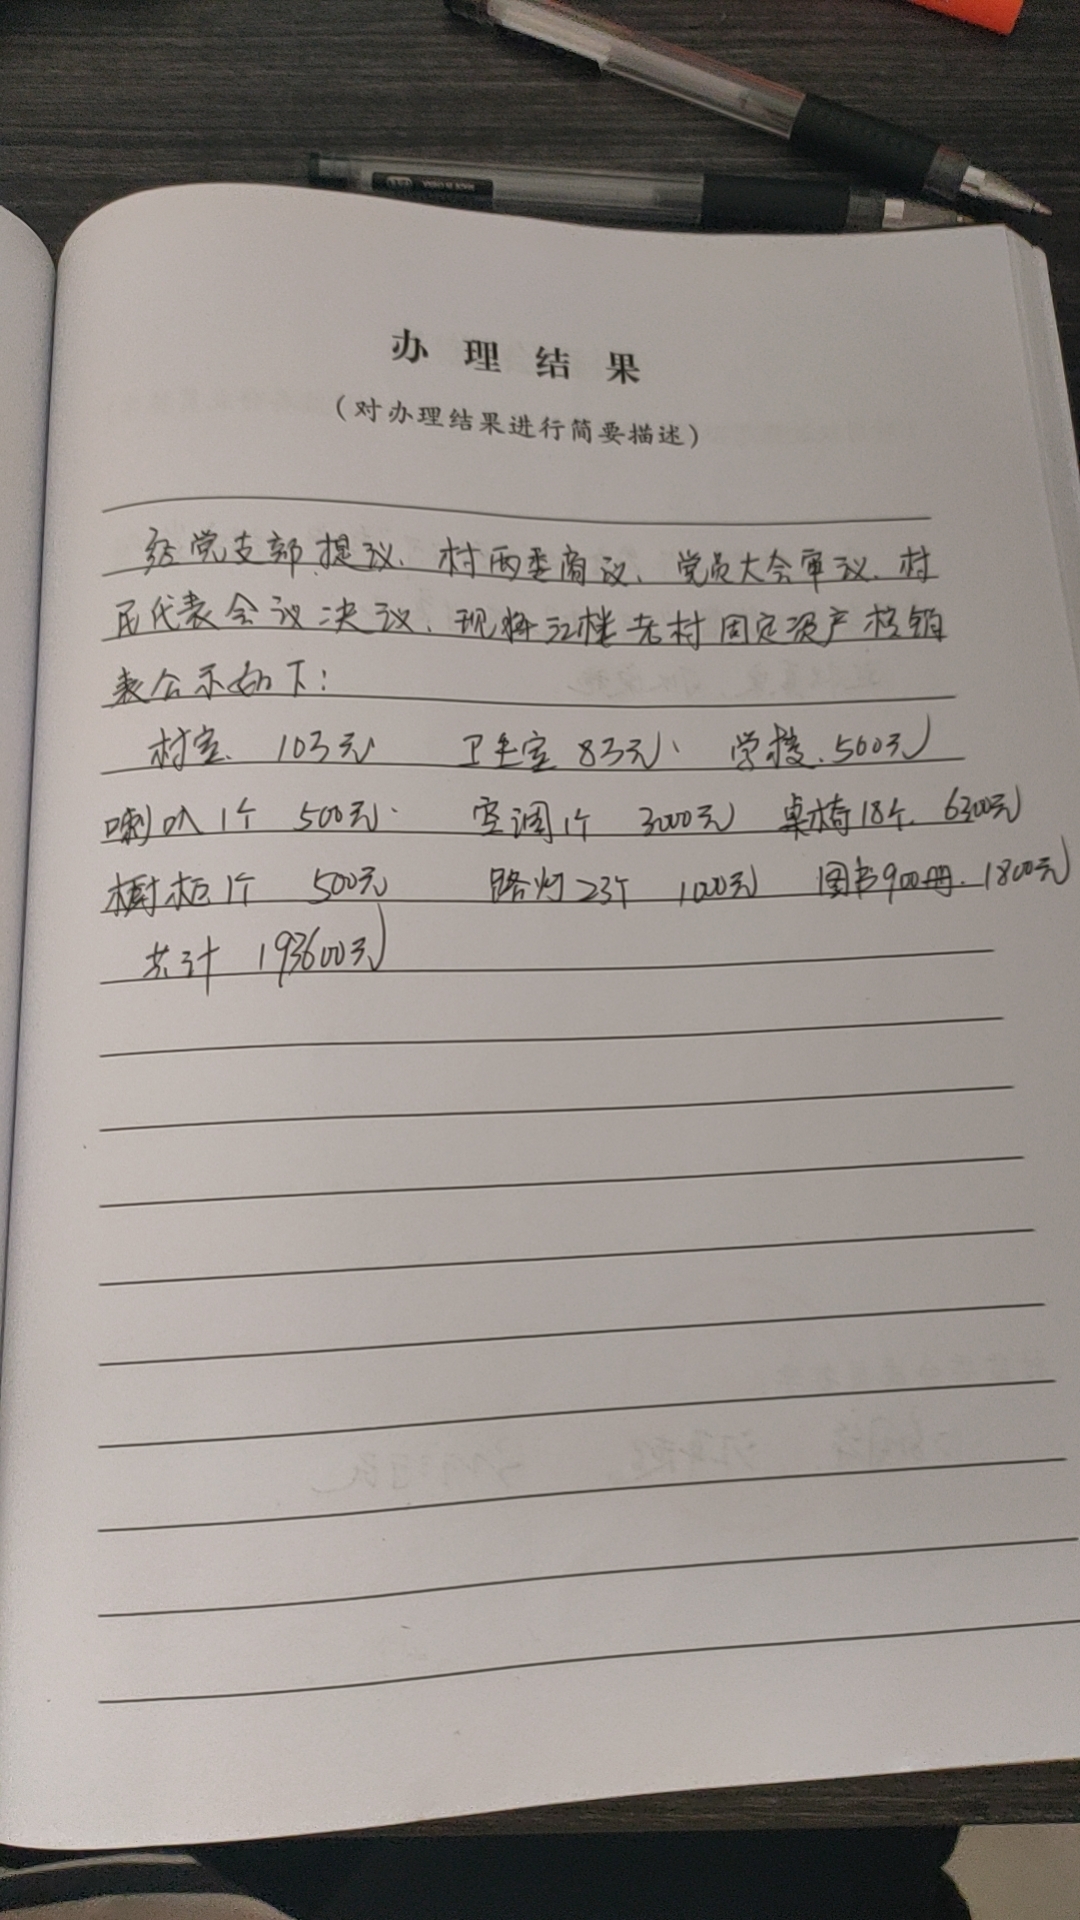 办理结果
(对办理结果进行简要描述)
经党支部提议、村两委商议、党员大会审议、村
民代表会议决议、现将江楼老村固定资产核销
表公示如下:
村室、103元 卫生室 83元、 学校、500元
喇叭1个 500元、 空调1个 3000元 桌椅18个、6300元
橱柜1个 500元 路灯23个 1000元 图书900册、1800元
共计 193600元